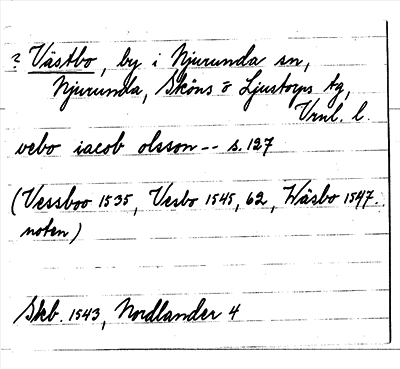 ? Västbo, by i Njurunda sn,
Njurunda, Sköns o Ljustorps tg,
Vrnl. l.
vebo iacob olsson -- s. 127
(Vessboo 1535, Vesbo 1545, 62, Wäsbo 1547.
noten)
Skb. 1543, Nordlander 4